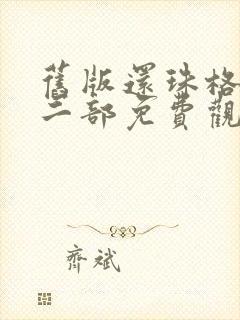 舊版還珠格
二部免費觀
齊斌